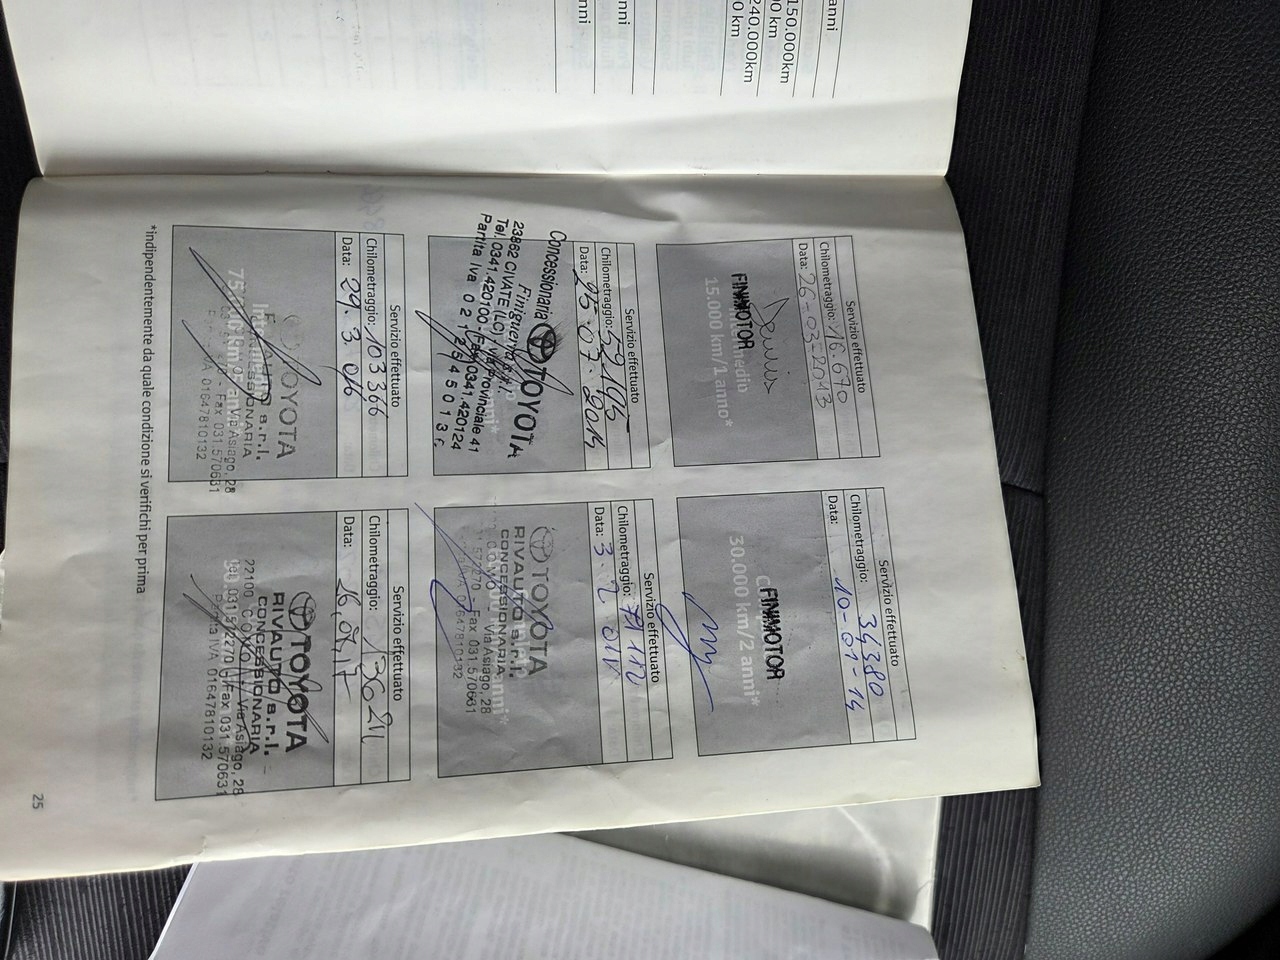 anni
150.000km
0 km
240.000km
0 km
nni
nni
Servizio effettuato
Chilometraggio: 16.670
Data: 26-03-2013
Dennis
FINMOTOR
15.000 km/1 anno*
Servizio effettuato
Chilometraggio: 34380
Data: 10-01-14
FINMOTOR
30.000 km/2 anni*
Servizio effettuato
Chilometraggio:
Data: 25.07.2014
Concessionaria TOYOTA
Finiguerra s.r.l.
23862 CIVATE (LC) Via Provinciale 41
Tel. 0341.420100 Fax 0341.420124
Partita Iva 0212645013
Servizio effettuato
Chilometraggio:
Data: 3.2
TOYOTA
RIVAUTO s.r.l.
CONCESSIONARIA
COMO - Via Asiago, 28
Fax 031.570631
01647810132
Servizio effettuato
Chilometraggio: 103366
Data: 29.3.
TOYOTA
s.r.l.
CONCESSIONARIA
Via Asiago, 28
Fax 031.570631
IVA 01647810132
Servizio effettuato
Chilometraggio:
Data:
TOYOTA
RIVAUTO s.r.l.
CONCESSIONARIA
22100 COMO - Via Asiago, 28
Fax 031.570631
IVA 01647810132
*indipendentemente da quale condizione si verifichi per prima
25